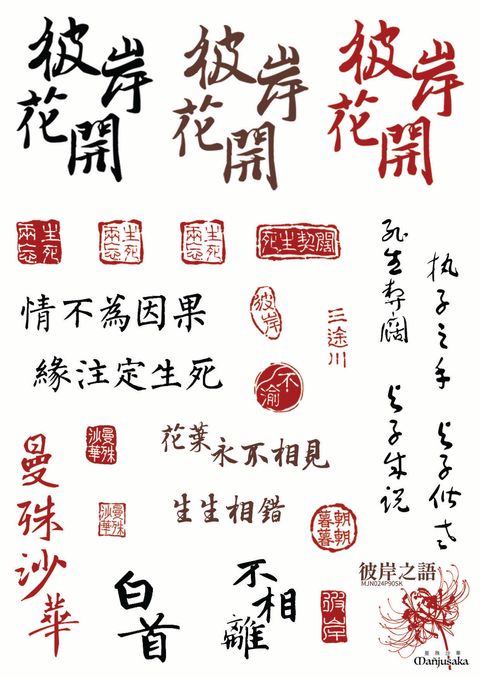 彼岸
花開
彼岸
花開
彼岸
花開
生死
兩忘
生死
兩忘
生死
兩忘
死生契闊
死生契闊
与子成说
执子之手
与子偕老
情不為因果
緣注定生死
彼岸
三途川
不渝
曼殊
沙華
花葉永不相見
生生相錯
曼殊沙華
曼殊
沙華
朝朝
暮暮
白首
不相離
彼岸
彼岸之語
MJN024P90SK
曼殊沙華
Manjusaka